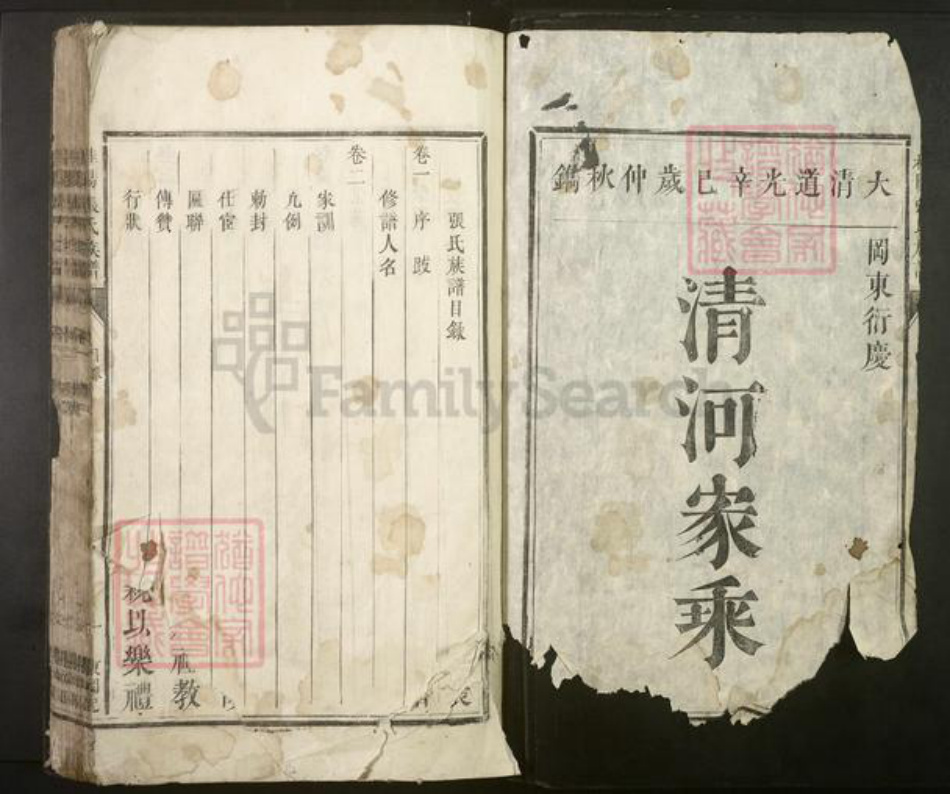 大清道光辛巳歲仲秋鐫
岡東衍慶
清河家乘
張氏族譜目錄
卷一 序 跋
修譜人名
卷二
家訓
凡例
勅封
仕宦
匾聯
傳贊
行狀
教
以樂禮
FamilySearch